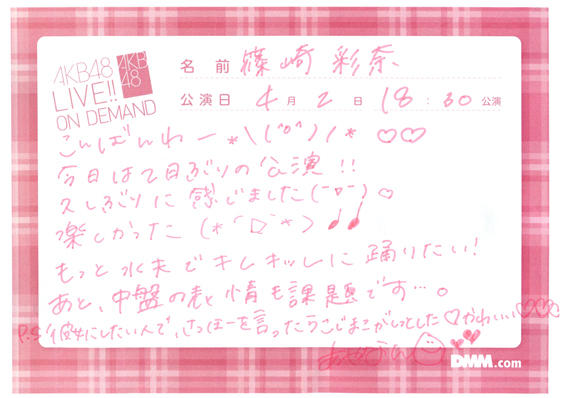 AKB48
LIVE!!
ON DEMAND
AKB
48
名前 篠崎 彩奈
公演日 4月2日 18:30公演
こんばんわー *\(^o^)/* ♡♡
今日は2日ぶりの公演!!
久しぶりに感じました(ˉ▽ˉ)♡
楽しかった(*´▽`*)♪♪
もっと水夫でキレキレに踊りたい!
あと、中盤の表情も課題です…。
P.S 彼女にしたい人で、さっほーを言ったらこじまこがしっとした♡かわいい♡♡♡
あやなん
DMM.com